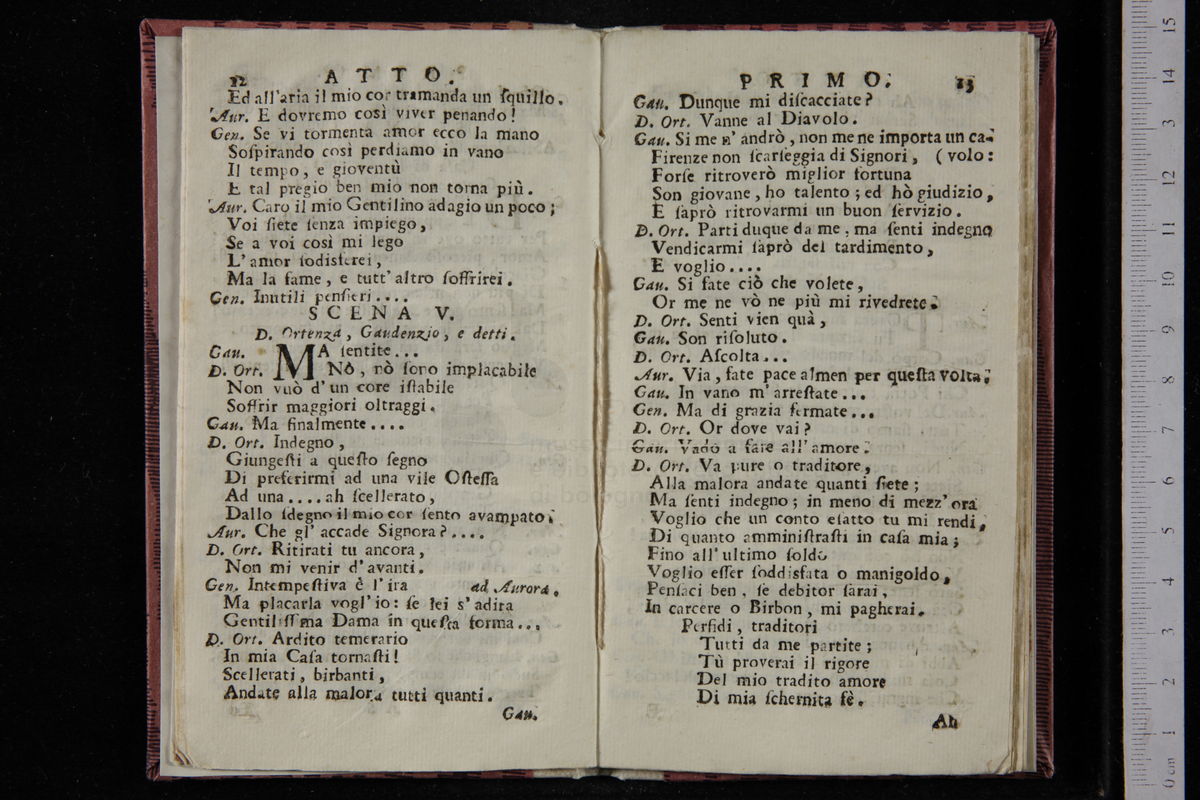 12 ATTO.
Ed all'aria il mio cor tramanda un ſquillo.
Aur. E dovremo così viver penando!
Gen. Se vi tormenta amor ecco la mano
Soſpirando così perdiamo in vano
Il tempo, e gioventù
E tal pregio ben mio non torna più.
Aur. Caro il mio Gentilino adagio un poco;
Voi ſiete ſenza impiego,
Se a voi così mi lego
L'amor ſodisferei,
Ma la fame, e tutt'altro ſoffrirei.
Gen. Inutili penſieri....
SCENA V.
D. Ortenza, Gaudenzio, e detti.
Gau. MA ſentite...
D. Ort. Nò, nò ſono implacabile
Non vuò d'un core iſtabile
Soffrir maggiori oltraggi.
Gau. Ma finalmente....
D. Ort. Indegno,
Giungeſti a queſto ſegno
Di preferirmi ad una vile Oſteſſa
Ad una....ah ſcellerato,
Dallo ſdegno il mio cor ſento avampato.
Aur. Che gl'accade Signora?....
D. Ort. Ritirati tu ancora,
Non mi venir d'avanti.
Gen. Intempeſtiva è l'ira ad Aurora.
Ma placarla vogl'io: ſe lei s'adira
Gentiliſſma Dama in queſta forma...
D. Ort. Ardito temerario
In mia Caſa tornaſti!
Scellerati, birbanti,
Andate alla malora tutti quanti.
Gau.
PRIMO. 13
Gau. Dunque mi diſcacciate?
D. Ort. Vanne al Diavolo.
Gau. Si me n'andrò, non me ne importa un ca-
Firenze non ſcarſeggia di Signori, (volo:
Forſe ritroverò miglior fortuna
Son giovane, ho talento; ed hò giudizio,
E ſaprò ritrovarmi un buon ſervizio.
D. Ort. Parti duque da me, ma ſenti indegno
Vendicarmi ſaprò del tardimento,
E voglio....
Gau. Si fate ciò che volete,
Or me ne vò ne più mi rivedrete.
D. Ort. Senti vien quà,
Gau. Son riſoluto.
D. Ort. Aſcolta...
Aur. Via, fate pace almen per queſta volta.
Gau. In vano m'arreſtate...
Gen. Ma di grazia fermate...
D. Ort. Or dove vai?
Gau. Vado a fare all'amore.
D. Ort. Va pure o traditore,
Alla malora andate quanti ſiete;
Ma ſenti indegno; in meno di mezz'ora
Voglio che un conto eſatto tu mi rendi,
Di quanto amminiſtraſti in caſa mia;
Fino all'ultimo ſoldo
Voglio eſſer ſoddisfata o manigoldo,
Penſaci ben, ſe debitor ſarai,
In carcere o Birbon, mi pagherai.
Perfidi, traditori
Tutti da me partite;
Tù proverai il rigore
Del mio tradito amore
Di mia ſchernita fè.
Ah
15
14
3
12
11
10
9
8
7
6
5
4
3
2
1
0 cm